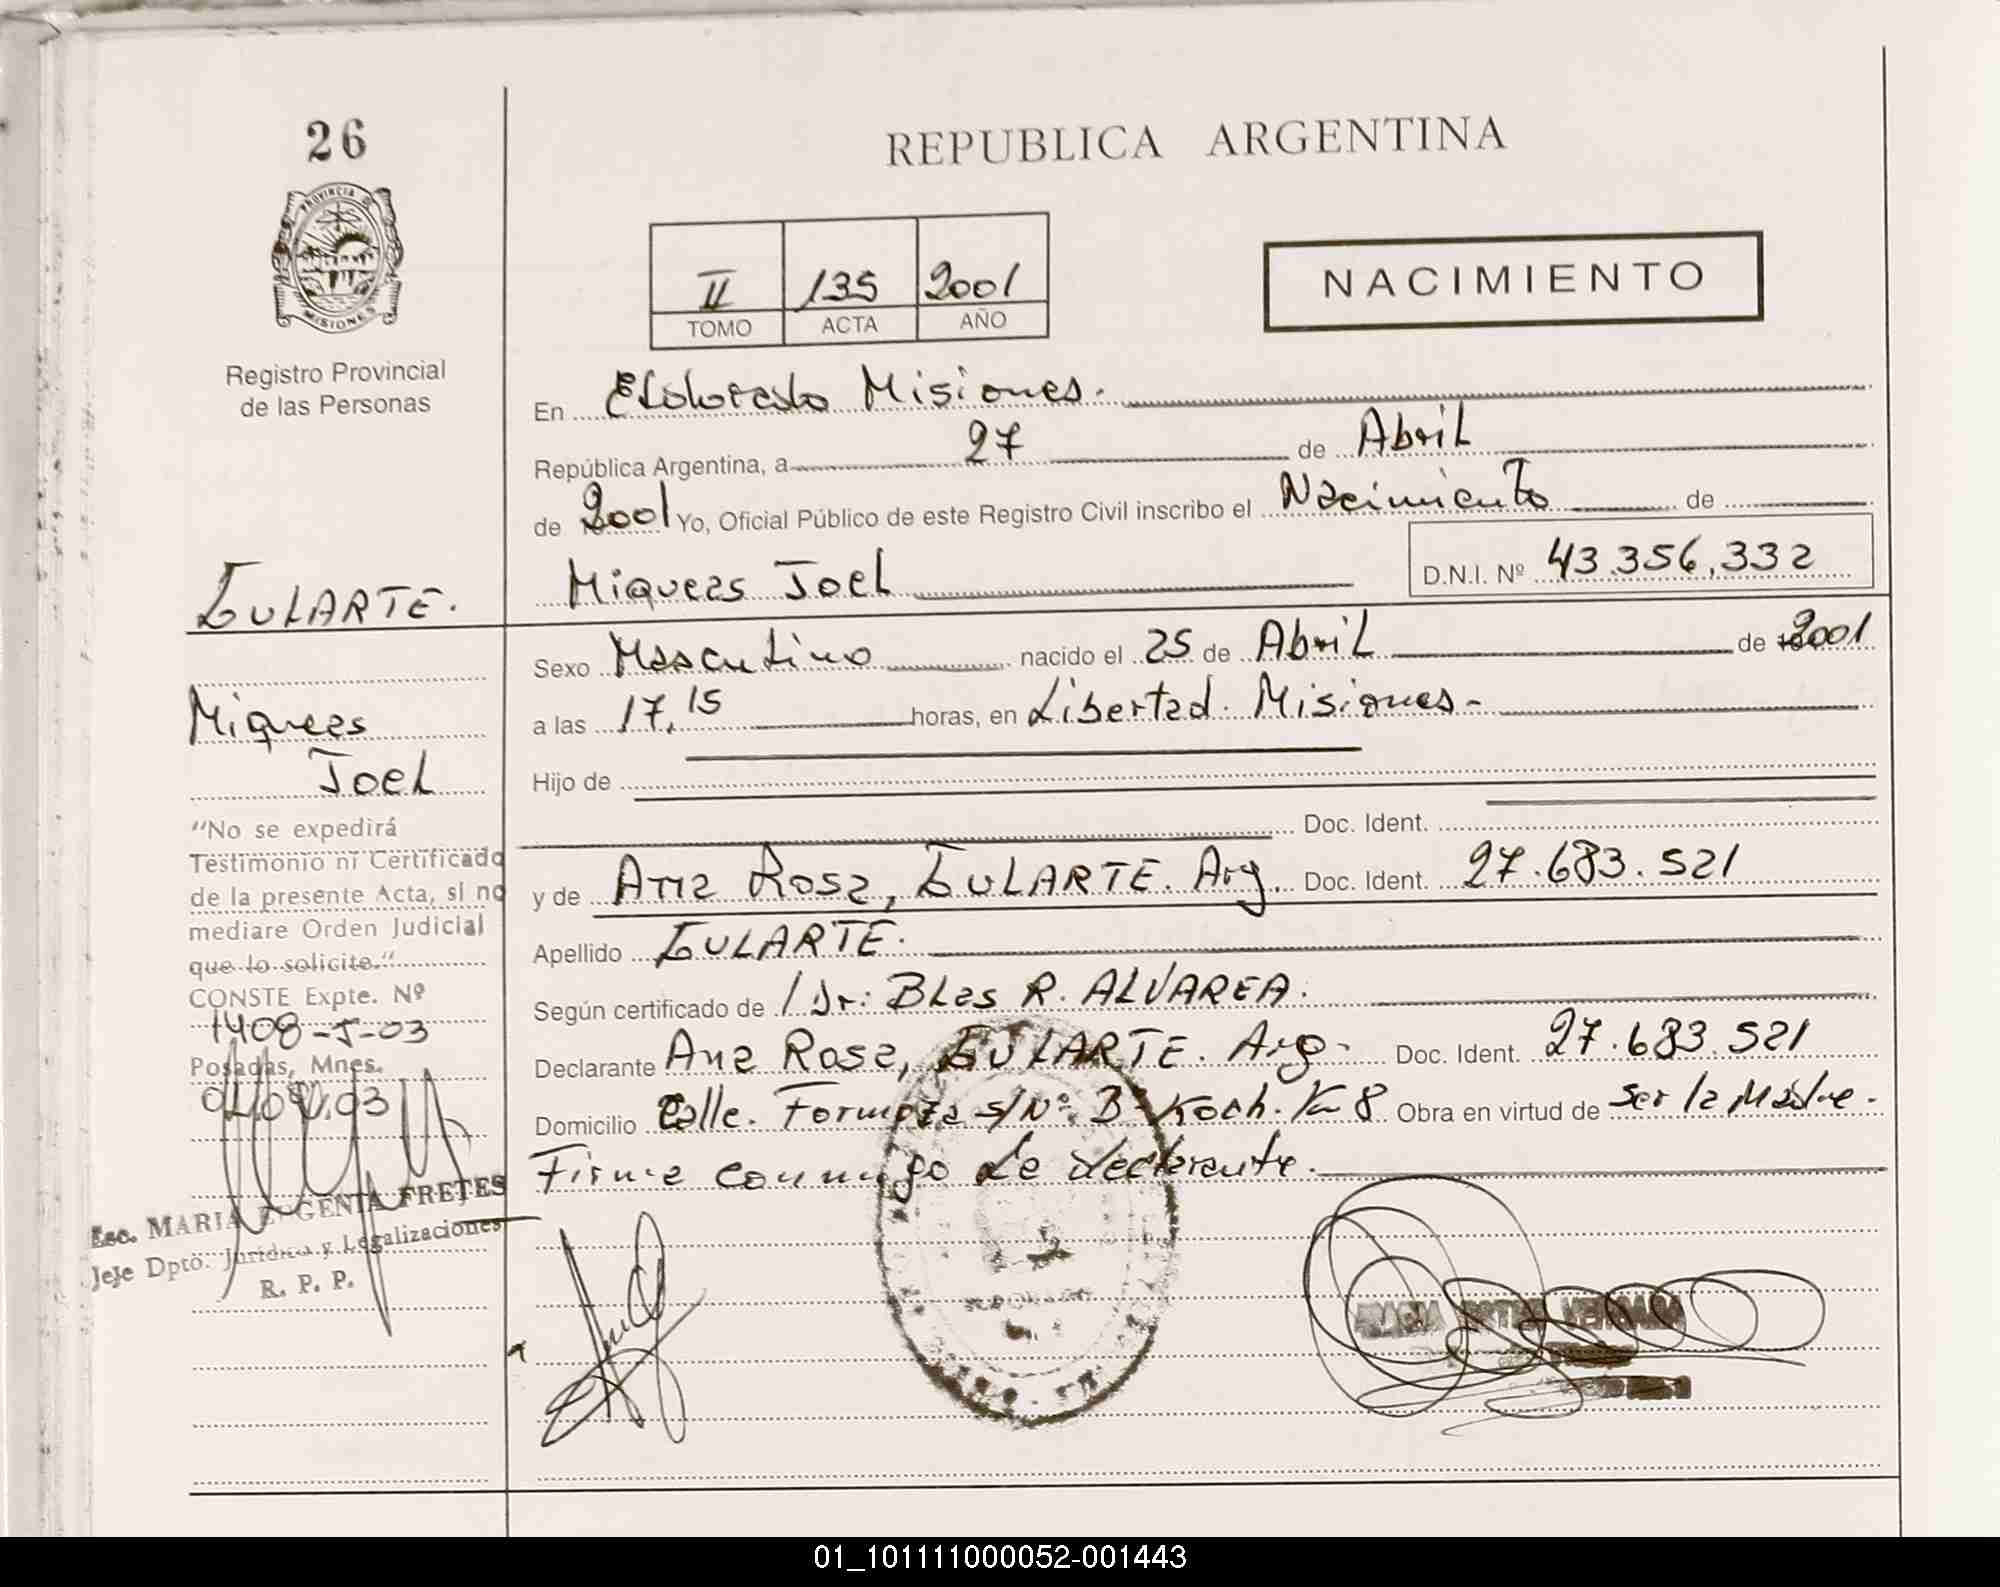 26
PROVINCIA DE
MISIONES
Registro Provincial
de las Personas
LULARTE.
Miqueas
Joel
"No se expedirá
Testimonio ni Certificado
de la presente Acta, si no
mediare Orden Judicial
que lo solicite."
CONSTE Expte. Nº
1408-J-03
Posadas, Mnes.
Esc. MARIA EUGENIA FRETES
Jefe Dpto. Jurídico y Legalizaciones
R. P. P.
REPUBLICA ARGENTINA
II 135 2001
TOMO ACTA AÑO
NACIMIENTO
En Eldorado Misiones.
República Argentina, a 27 de Abril
de 2001 Yo, Oficial Público de este Registro Civil inscribo el Nacimiento de
Miqueas Joel D.N.I. Nº 43.356,332
Sexo Masculino nacido el 25 de Abril de 2001
a las 17,15 horas, en Libertad. Misiones-
Hijo de
Doc. Ident.
y de Ana Rosa, LULARTE. Arg. Doc. Ident. 27.683.521
Apellido LULARTE.
Según certificado de / Dr: Blas R. ALVAREA.
Declarante Ana Rosa, LULARTE. Arg- Doc. Ident. 27.683.521
Domicilio Calle. Formosa s/Nº. B- Koch. Km 8 Obra en virtud de ser la Madre.
Firma conmigo la declarante.
01_101111000052-001443